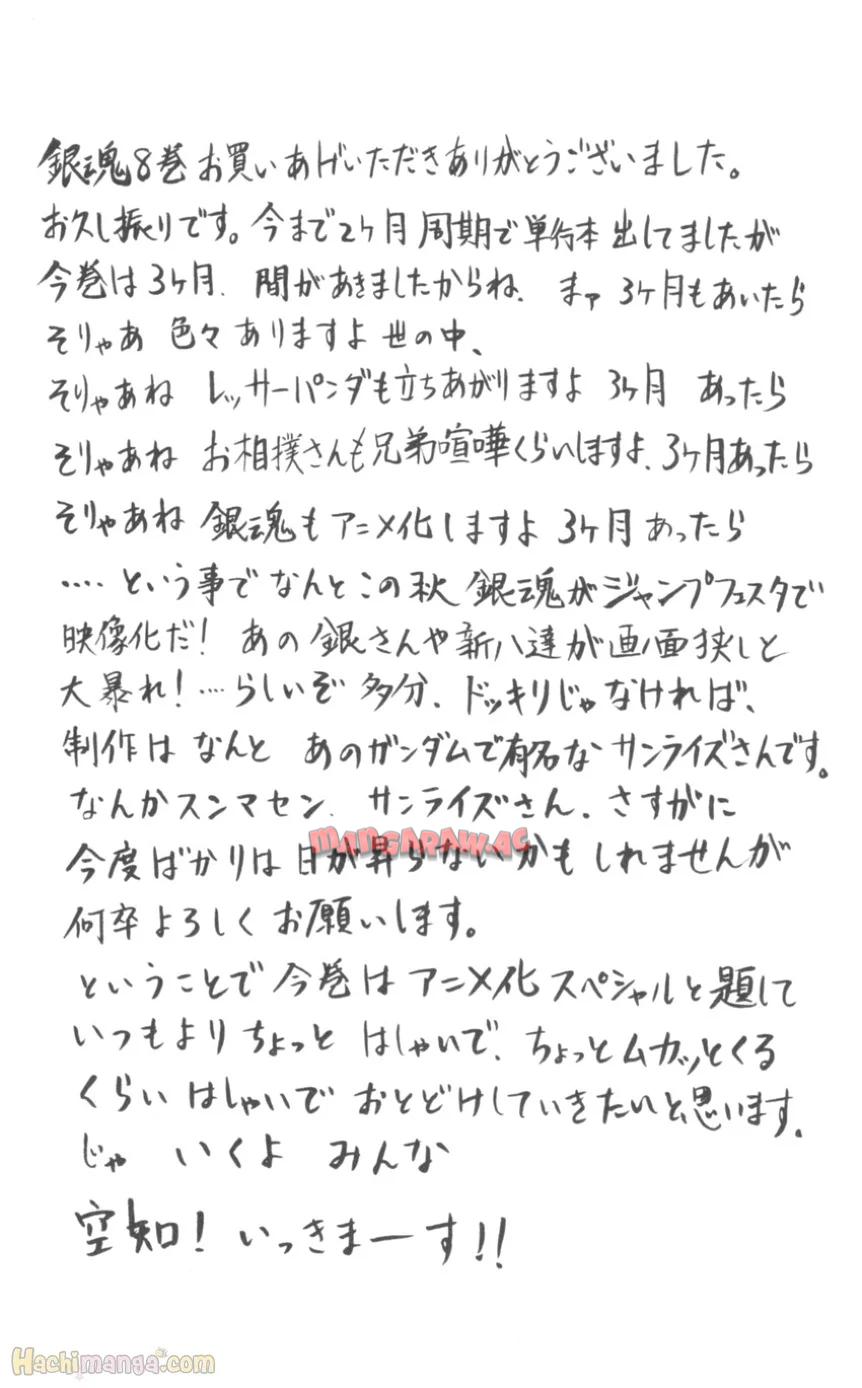 銀魂8巻お買いあげいただきありがとうございました。
お久し振りです。今まで2ヶ月周期で単行本出してましたが
今巻は3ヶ月、間があきましたからね、まァ3ヶ月もあいたら
そりゃあ色々ありますよ世の中、
そりゃあねレッサーパンダも立ちあがりますよ3ヶ月あったら
そりゃあねお相撲さんも兄弟喧嘩くらいしますよ、3ヶ月あったら
そりゃあね銀魂もアニメ化しますよ3ヶ月あったら
‥‥という事でなんとこの秋銀魂がジャンプフェスタで
映像化だ!あの銀さんや新八達が画面狭しと
大暴れ!…らしいぞ多分、ドッキリじゃなければ、
制作はなんとあのガンダムで有名なサンライズさんです。
なんかスンマセン、サンライズさん、さすがに
今度ばかりは日が昇らないかもしれませんが
MANGARAW.AC
何卒よろしくお願いします。
ということで今巻はアニメ化スペシャルと題して
いつもよりちょっとはしゃいで、ちょっとムカッとくる
くらいはしゃいでおとどけしていきたいと思います、
じゃ いくよ みんな
空知!いっきまーす!!
Hachimanga.com